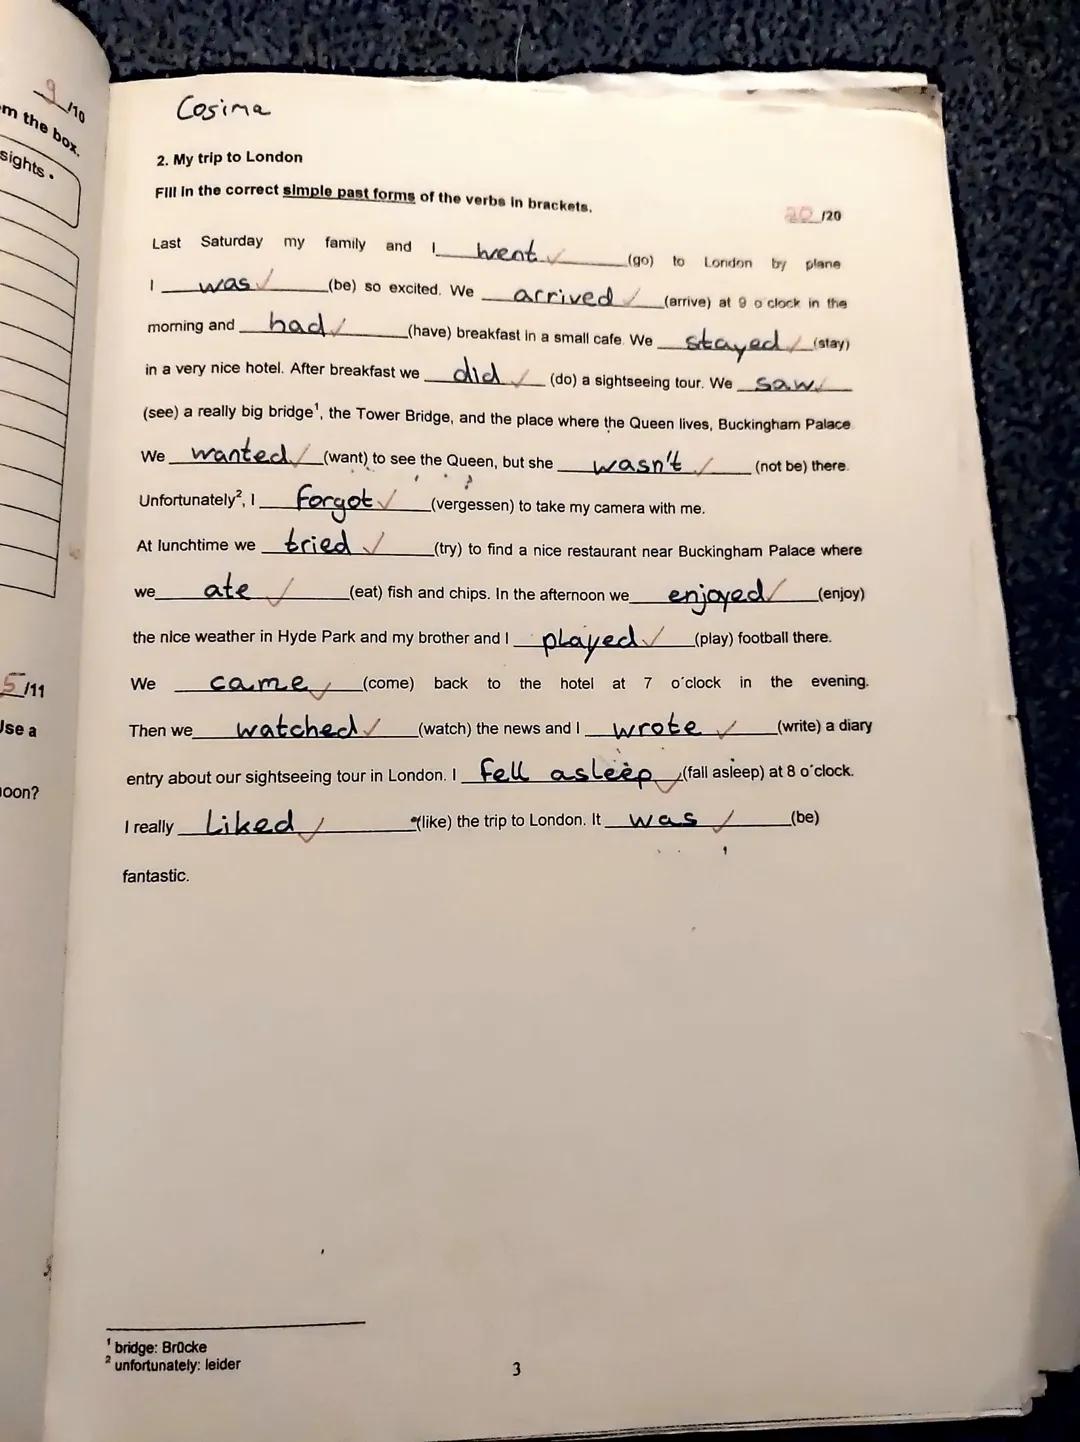 9/10
m the box.
sights •
5/11
Use a
noon?
Cosima
2. My trip to London
Fill in the correct simple past forms of the verbs in brackets.
20/20
Last Saturday my family and I went (go) to London by plane
I was (be) so excited. We arrived (arrive) at 9 o'clock in the
morning and had (have) breakfast in a small cafe. We stayed (stay)
in a very nice hotel. After breakfast we did (do) a sightseeing tour. We saw
(see) a really big bridge¹, the Tower Bridge, and the place where the Queen lives, Buckingham Palace.
We wanted (want) to see the Queen, but she wasn't (not be) there.
Unfortunately², I forgot (vergessen) to take my camera with me.
At lunchtime we tried (try) to find a nice restaurant near Buckingham Palace where
we ate (eat) fish and chips. In the afternoon we enjoyed (enjoy)
the nice weather in Hyde Park and my brother and I played (play) football there.
We came (come) back to the hotel at 7 o´clock in the evening.
Then we watched (watch) the news and I wrote (write) a diary
entry about our sightseeing tour in London. I fell asleep (fall asleep) at 8 o´clock.
I really liked (like) the trip to London. It was (be)
fantastic.
¹ bridge: Brücke
² unfortunately: leider
3